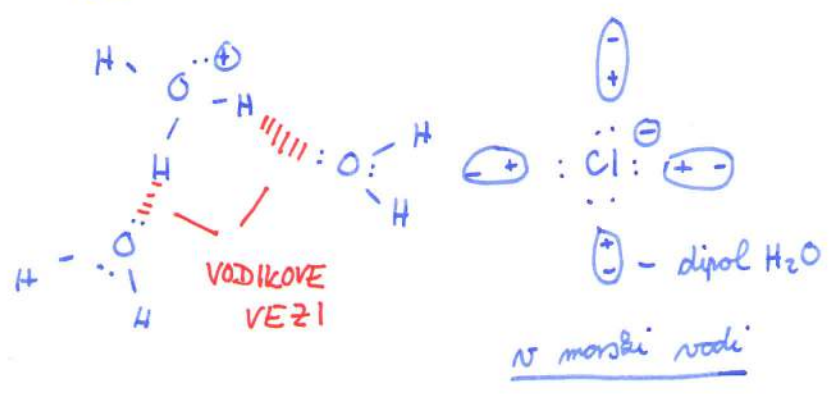 H O ⊕
H
H
O H
H
O
H
H
VODIKOVE
VEZI
- +
+ -
- + : Cl : ⊖ + -
+ -
- dipol H₂O
v morski vodi